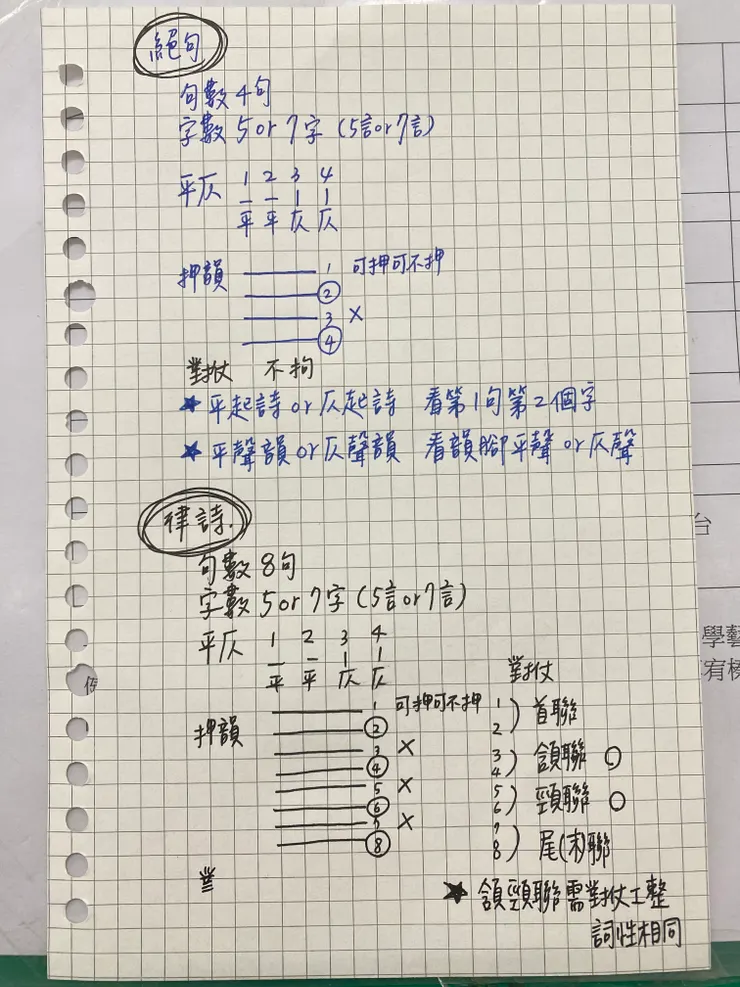 絕句
句數 4句
字數 5 or 7字 (5言or7言)
平仄 1 2 3 4
平 平 仄 仄
押韻 1 可押可不押
2
3 ×
4
對扙 不拘
★ 平起詩 or 仄起詩 看第1句第2個字
★ 平聲韻 or 仄聲韻 看韻腳平聲 or 仄聲
律詩.
句數 8句
字數 5 or 7字 (5言or7言)
平仄 1 2 3 4
平 平 仄 仄
押韻 1 可押可不押
2
3 ×
4
5 ×
6
7 ×
8
對扙
1 2 ) 首聯
3 4 ) 頷聯 ○
5 6 ) 頸聯 ○
7 8 ) 尾(末)聯
★ 頷頸聯需對扙工整
詞性相同
台
學藝
宥榛